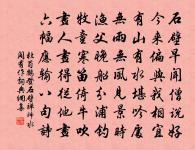 石壁早聞僧說好
今來偏與我相宜
有山有水堪吟處
無雨無風見景時
漁父晚船分浦釣
牧童寒笛倚牛吹
畫人畫得從他畫
六幅應輸八句詩
杜荀鶴登石壁禪師水
閣有作詩典網